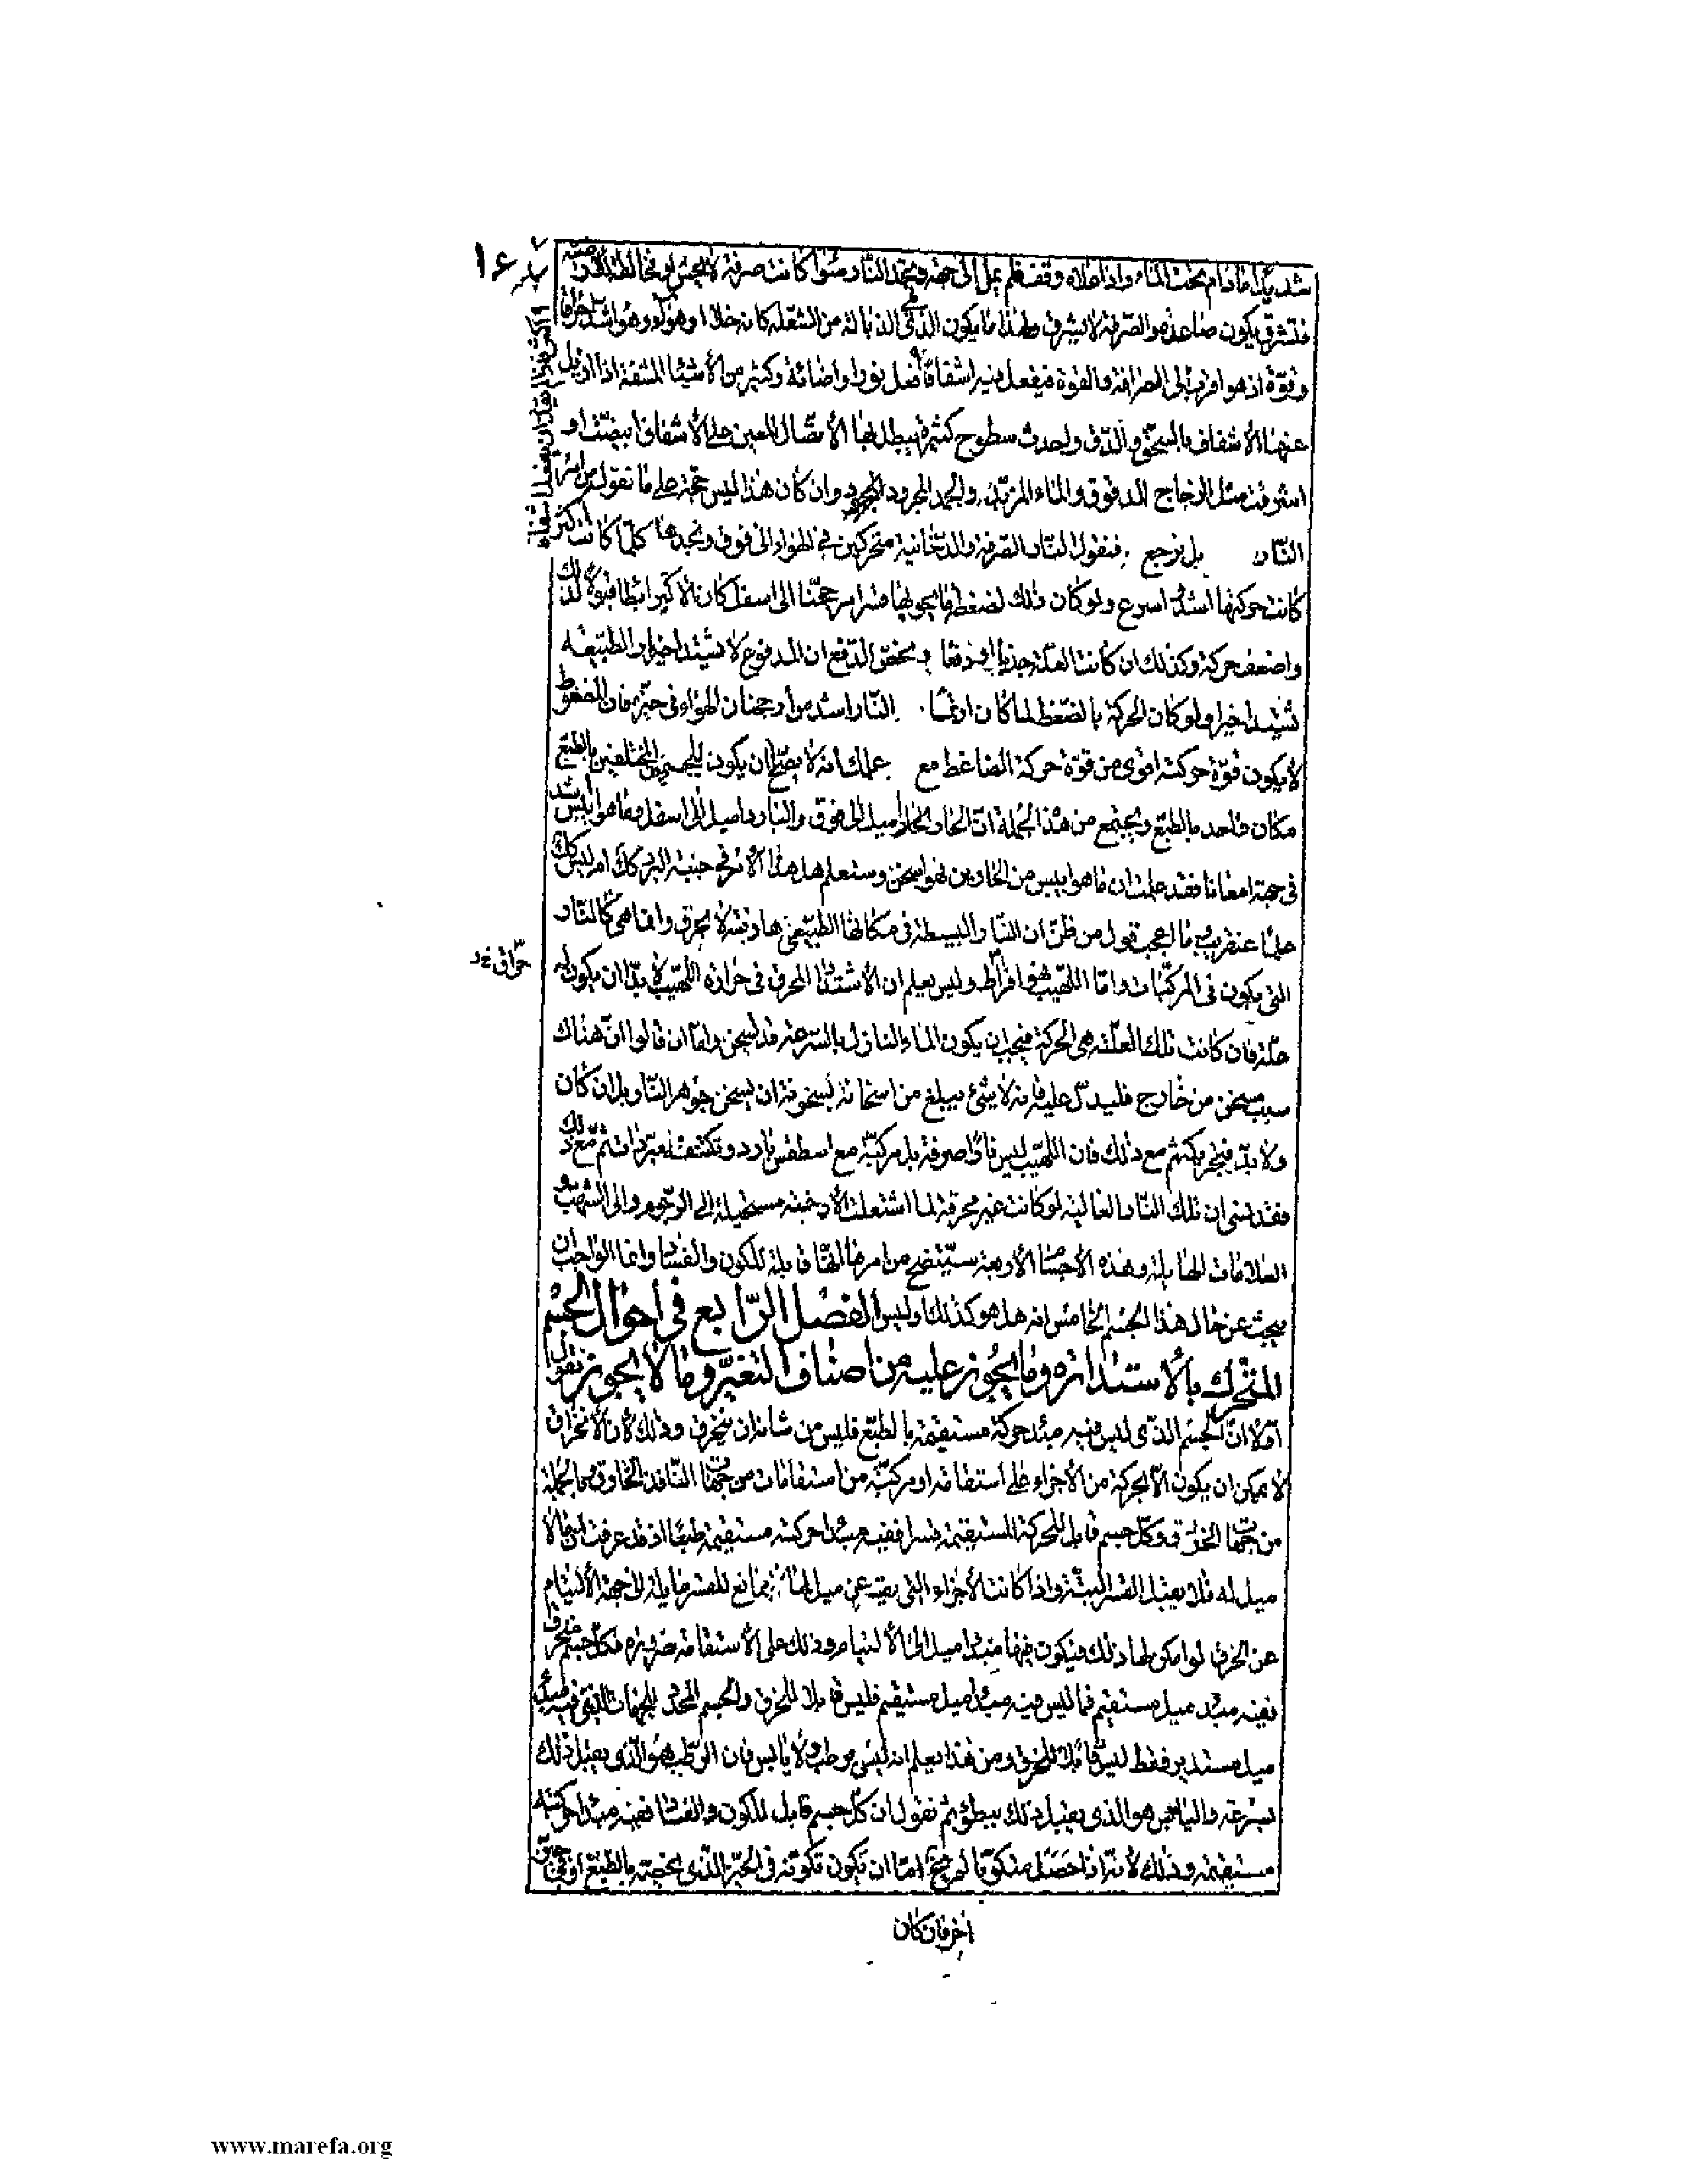 شديدا ما دام تحت الماء واذا علاه وقف فلم يمل الى جهة ونجد النار سواء كانت صرفة لا تحس او مخالطة للارضية
فتشرق يكون صاعدة والصرفة لا تشرق ولهذا ما يكون الذى الذبالة من الشعلة كانه خلاء او هواء وهو اشد احراقا
وقوة اذ هو اقرب الى الصرافة والقوة فيفعل فيه اشفافا افعل نورا واضائة وكثير من الأشياء المشفة اذا ازيل
عنها الأشفاف بالسحق والدق واحدث سطوح كثيرة يبطل بها الأتصال المعين على الأشفاف ابيضت او
اشرقت مثل الزجاج المدقوق والماء المزبد والجمد المجرود وان كان هذا ليس حجة على ما نقول من امر
النار بل نرجع فنقول النار الصرفة والدخانية متحركين فى الهواء الى فوق ونجدها كلما كانت اكبر
كانت حركتها اشد واسرع ولو كان ذلك لضغط ما يحويها قسرا مرجحنا الى اسفل كان الأكبر ابطأ قبولا لذلك
واضعف حركة وكذلك ان كانت العلة جذبا او دفعا ويخص الدفع ان المدفوع لا يشتد اخيرا والطبيعية
تشتد اخيرا ولو كان الحركة بالضغط لما كان ارجحنان النار اشد من ارجحنان الهواء فى حيزه فان المضغوط
لا يكون قوة حركته اقوى من قوة حركة الضاغط مع علمك انه لا يصح ان يكون للجسمين المختلفين بالطبع
مكان واحد بالطبع ويجتمع من هذه الجملة ان الحار اميل الى فوق والبارد اميل الى اسفل وما هو ايبس اشد
فى جهة امعانا فقد علمت ان ما هو ايبس من الحارين فهو اسخن وستعلم هل هذا الأمر فى جنبة البرد كذلك ام ليس كذلك
علما عن قريب وما اعجب قول من ظن ان النار البسيطة فى مكانها الطبيعى هادئة لا تحرق وانما هى كالنار
التى يكون فى المركبات واما اللهيب فهو افراط وليس يعلم ان الأشتداد المحرق فى حرارة اللهيب لا بد ان يكون له
علة فان كانت تلك العلة هى الحركة فيجب ان يكون الماء النازل بالسرعة قد يسخن واما ان قالوا ان هناك
سبب مسخن من خارج فليدل عليه فانه لا شئ يبلغ من اسخانه بسخونة ان يسخن جوهر النار بل ان كان
ولا بد فيتحريكه ثم مع ذلك فان اللهيب ليس نارا صرفة بل مركبة مع اسطقس بارد وتكتنفه مبردات ثم مع ذلك
فقد نسى ان تلك النار العالية لو كانت غير محرقة لما اشتعلت الأدخنة مستحيلة الى الرجوم والى الشهب و
العلامات الهائلة وهذه الأجسام الأربعة ستتضح من امرها انها قابلة للكون والفساد وانما الواجب ان
يبحث عن حال هذا الجسم الخامس انه هل هو كذلك او ليس الفصل الرابع فى احوال الجسم
المتحرك بالأستدارة وما يجوز عليه من اصناف التغير وما لا يجوز نقول
اولا ان الجسم الذى ليس فيه مبدء حركة مستقيمة بالطبع فليس من شانه ان ينخرق وذلك لأن الأنخراق
لا يمكن ان يكون الا بحركة من الأجزاء على استقامة او مركبة من استقامات من جهات النافذ الخارق وبالجملة
من جهات الخرق وكل جسم قابل للحركة المستقيمة قسرا ففيه مبدء حركة مستقيمة طبعا اذ قد عرفت ان ما لا
ميل له فلا يقبل القسر البتة واذا كانت الأجزاء التى يقيد عن ميل لها ممانع للقسر مايلة الى جهة الألتيام
عن الخرق لو امكن لها ذلك فيكون فيها مبدء ميل الى الألتيام وذلك على الأستقامة ضرورة فكل جسم منخرق
ففيه مبدء ميل مستقيم فما ليس فيه مبدء ميل مستقيم فليس قابلا للخرق والجسم المحدد للجهات التى فيه مبدء
ميل مستدير فقط ليس قابلا للخرق ومن هذا يعلم انه ليس برطب ولا يابس فان الرطب هو الذى يقبل ذلك
بسرعة واليابس هو الذى يقبل ذلك ببطؤ ثم نقول ان كل جسم قابل للكون والفساد ففيه مبدء حركة
مستقيمة وذلك لأنه اذا حصل متكونا لم يخل اما ان يكون تكونه فى الحيز الذى يخصه بالطبع او فى حيز
اخر فان كان
www.marefa.org